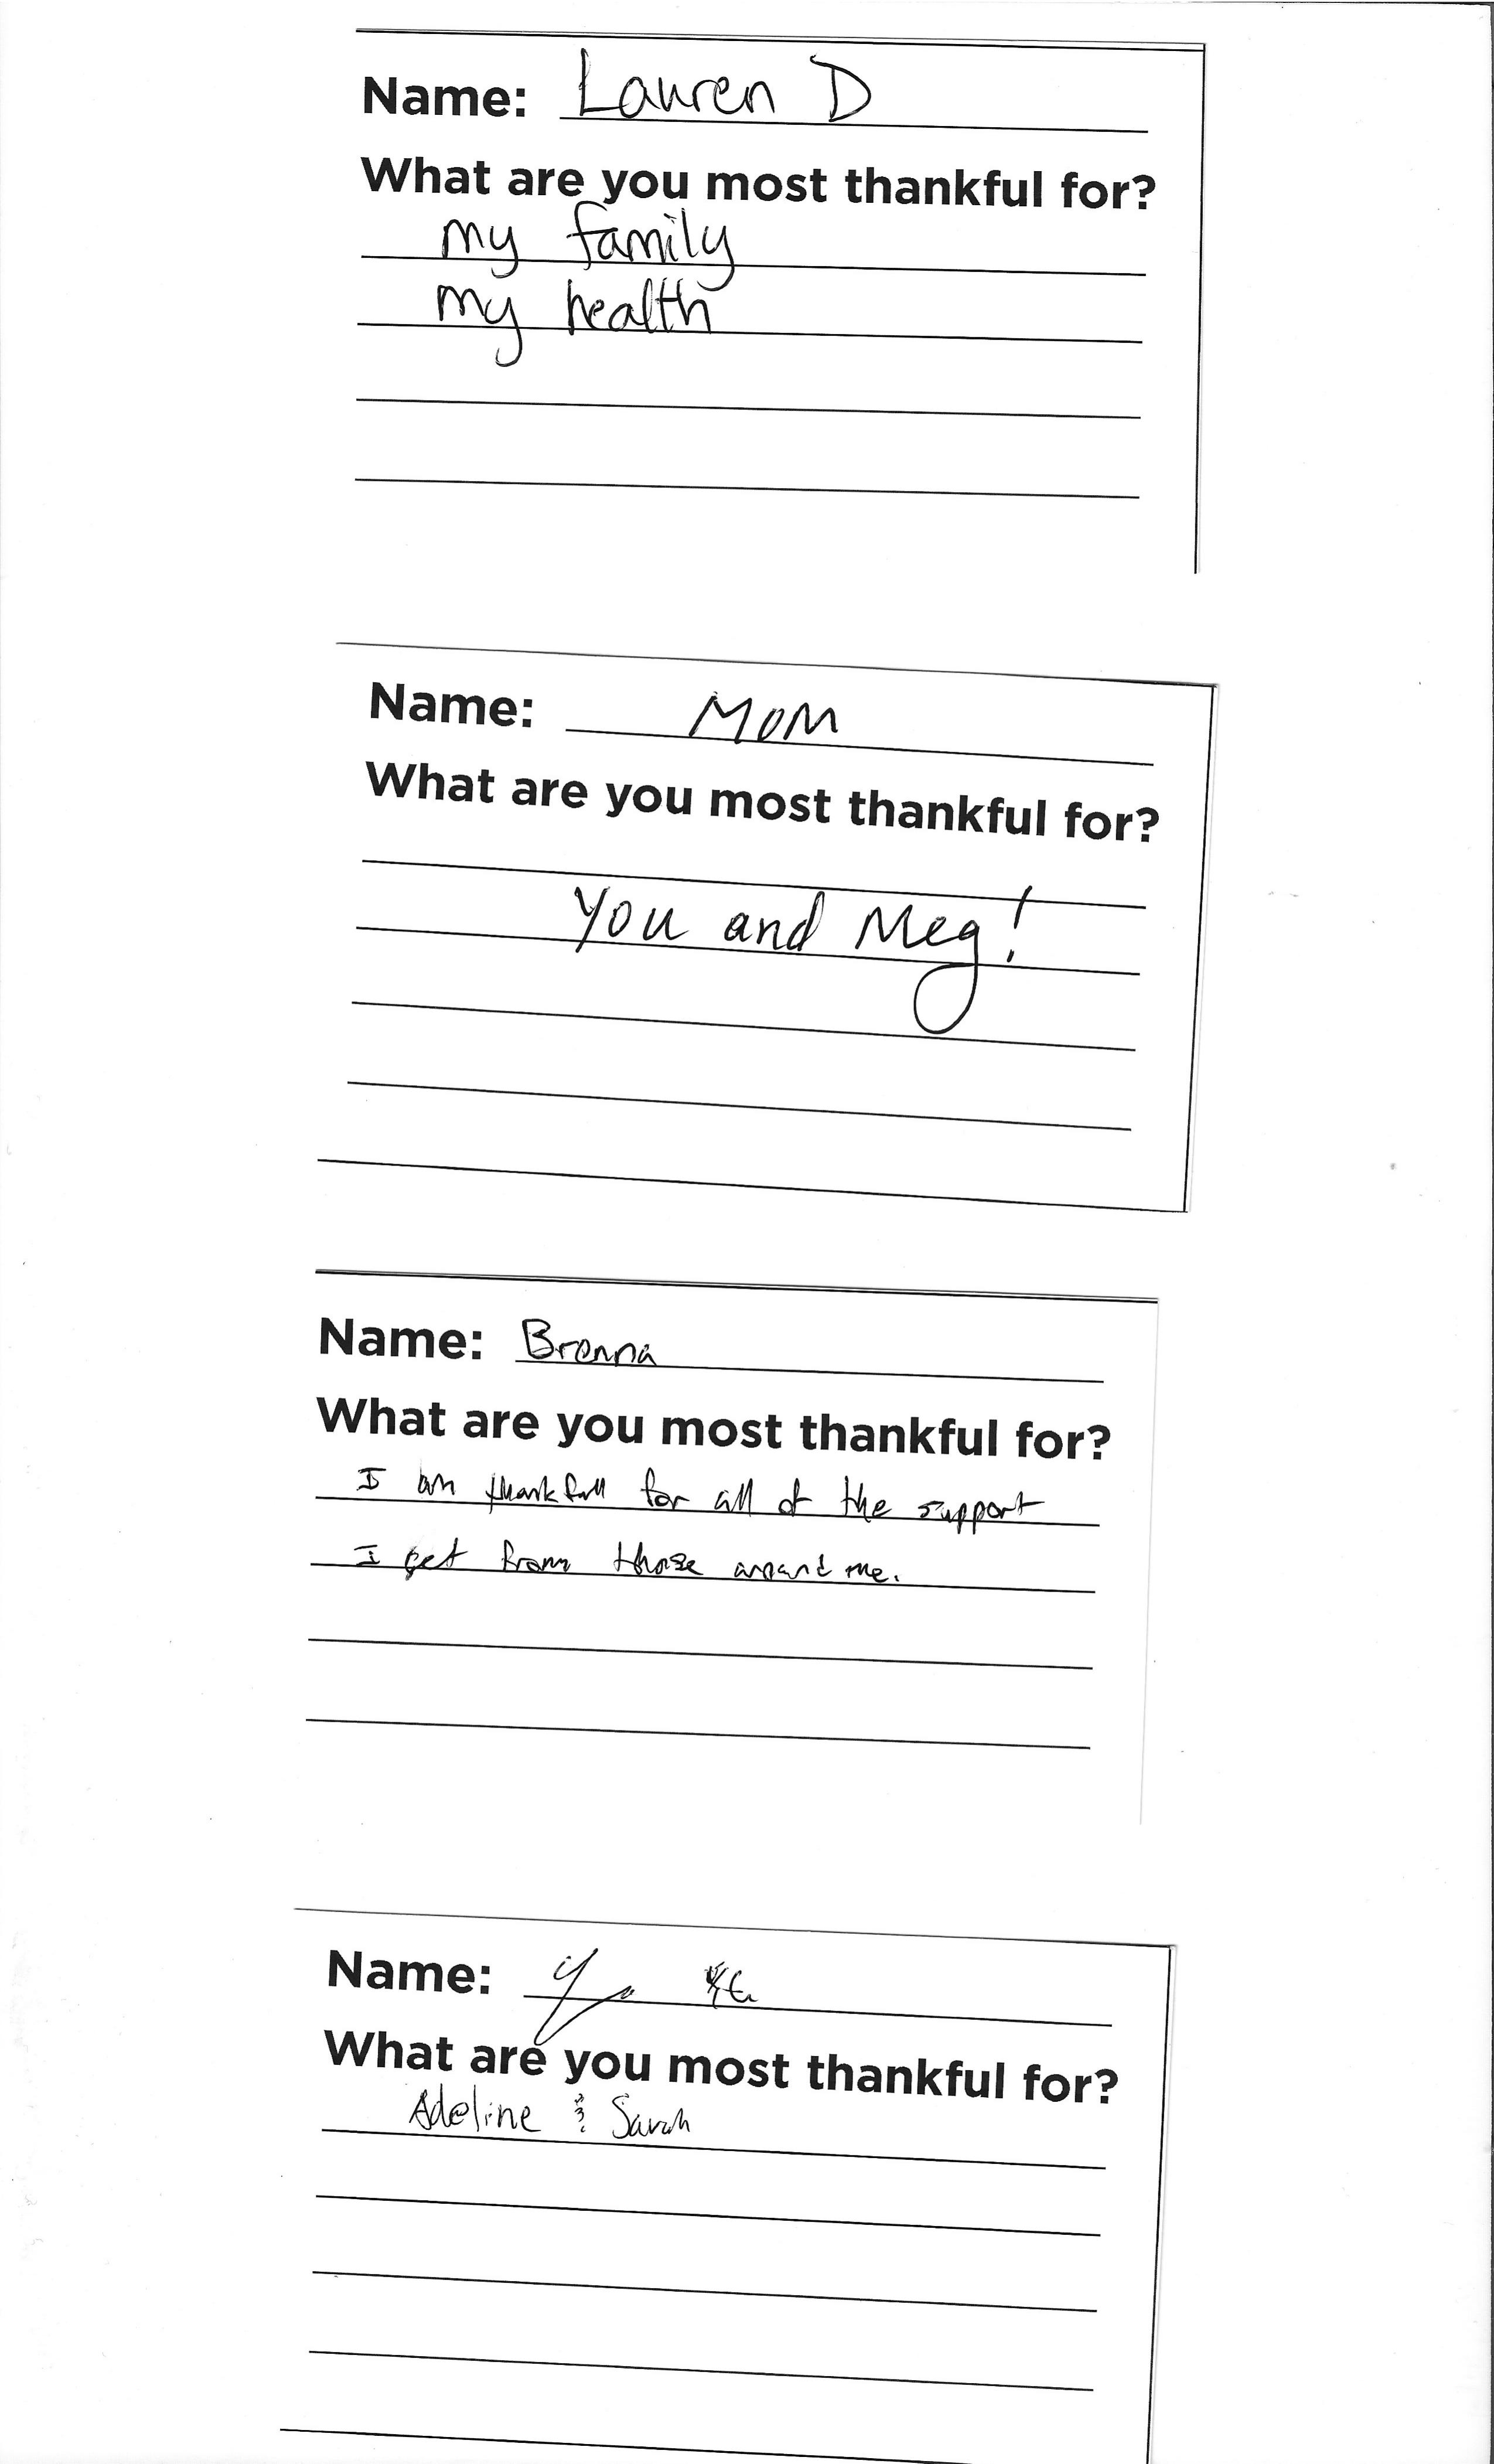 Name: Lauren D
What are you most thankful for?
my family
my health
Name: MOM
What are you most thankful for?
You and Meg!
Name: Brenna
What are you most thankful for?
I am thankfull for all of the support
I get from those around me.
Name:
What are you most thankful for?
Adeline & Sarah